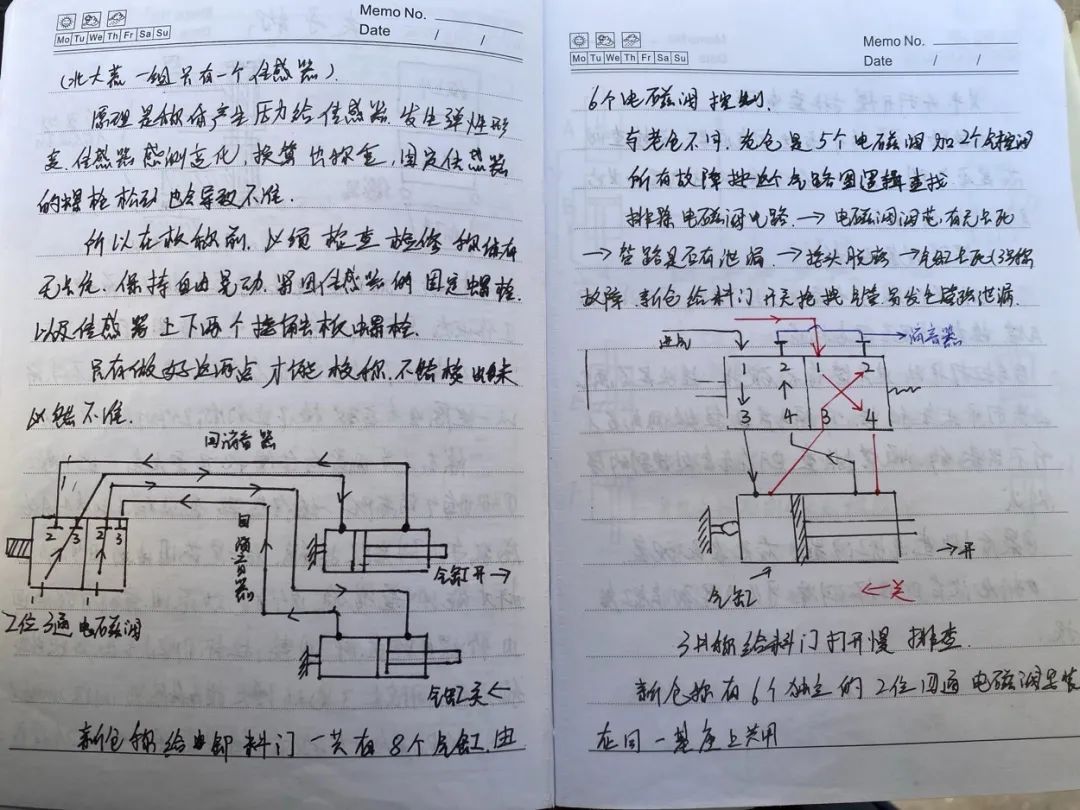 Memo No.
Mo Tu We Th Fr Sa Su
Date / /
(北大荒一组只有一个传感器).
原理是称体产生压力给传感器.发生弹性形
变.传感器感测变化,换算出称重,固定传感器
的螺栓松动也会导致不准.
所以在校称前,必须检查检修称体有
无卡住.保持自由晃动.紧固传感器的固定螺栓.
以及传感器上下两个接触板螺栓.
只有做好这两点才能校称.不然校出来
必然不准.
回消音器
2 3 2 3
1 1
回消音器
气缸开→
2位3通电磁阀
气缸关←
新仓称给卸料门一共有8个气缸,由
Memo No.
Mo Tu We Th Fr Sa Su
Date / /
6个电磁阀控制.
与老仓不同.老仓是5个电磁阀加2个气控阀
所有故障按这个气路图逻辑查找
排除电磁阀电路.→电磁阀阀芯,有无卡死
→管路是否有泄漏.→接头脱落→气缸卡死
故障.新仓给料门开关 泄漏.
进气
→消音器
1 2 1 2
3 4 3 4
→开
气缸
←关
3#称给料门打开慢 排查.
新仓称有6个独立的2位四通电磁阀安装
在同一基座上共用